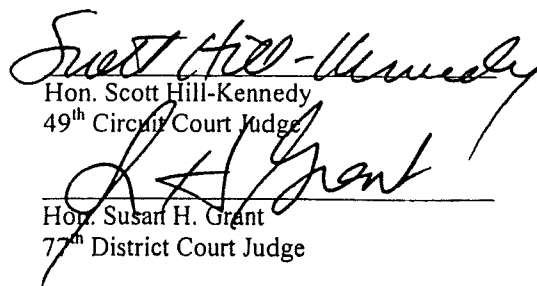 Scott Hill-Kennedy
Hon. Scott Hill-Kennedy
49th Circuit Court Judge
S H Grant
Hon. Susan H. Grant
77th District Court Judge